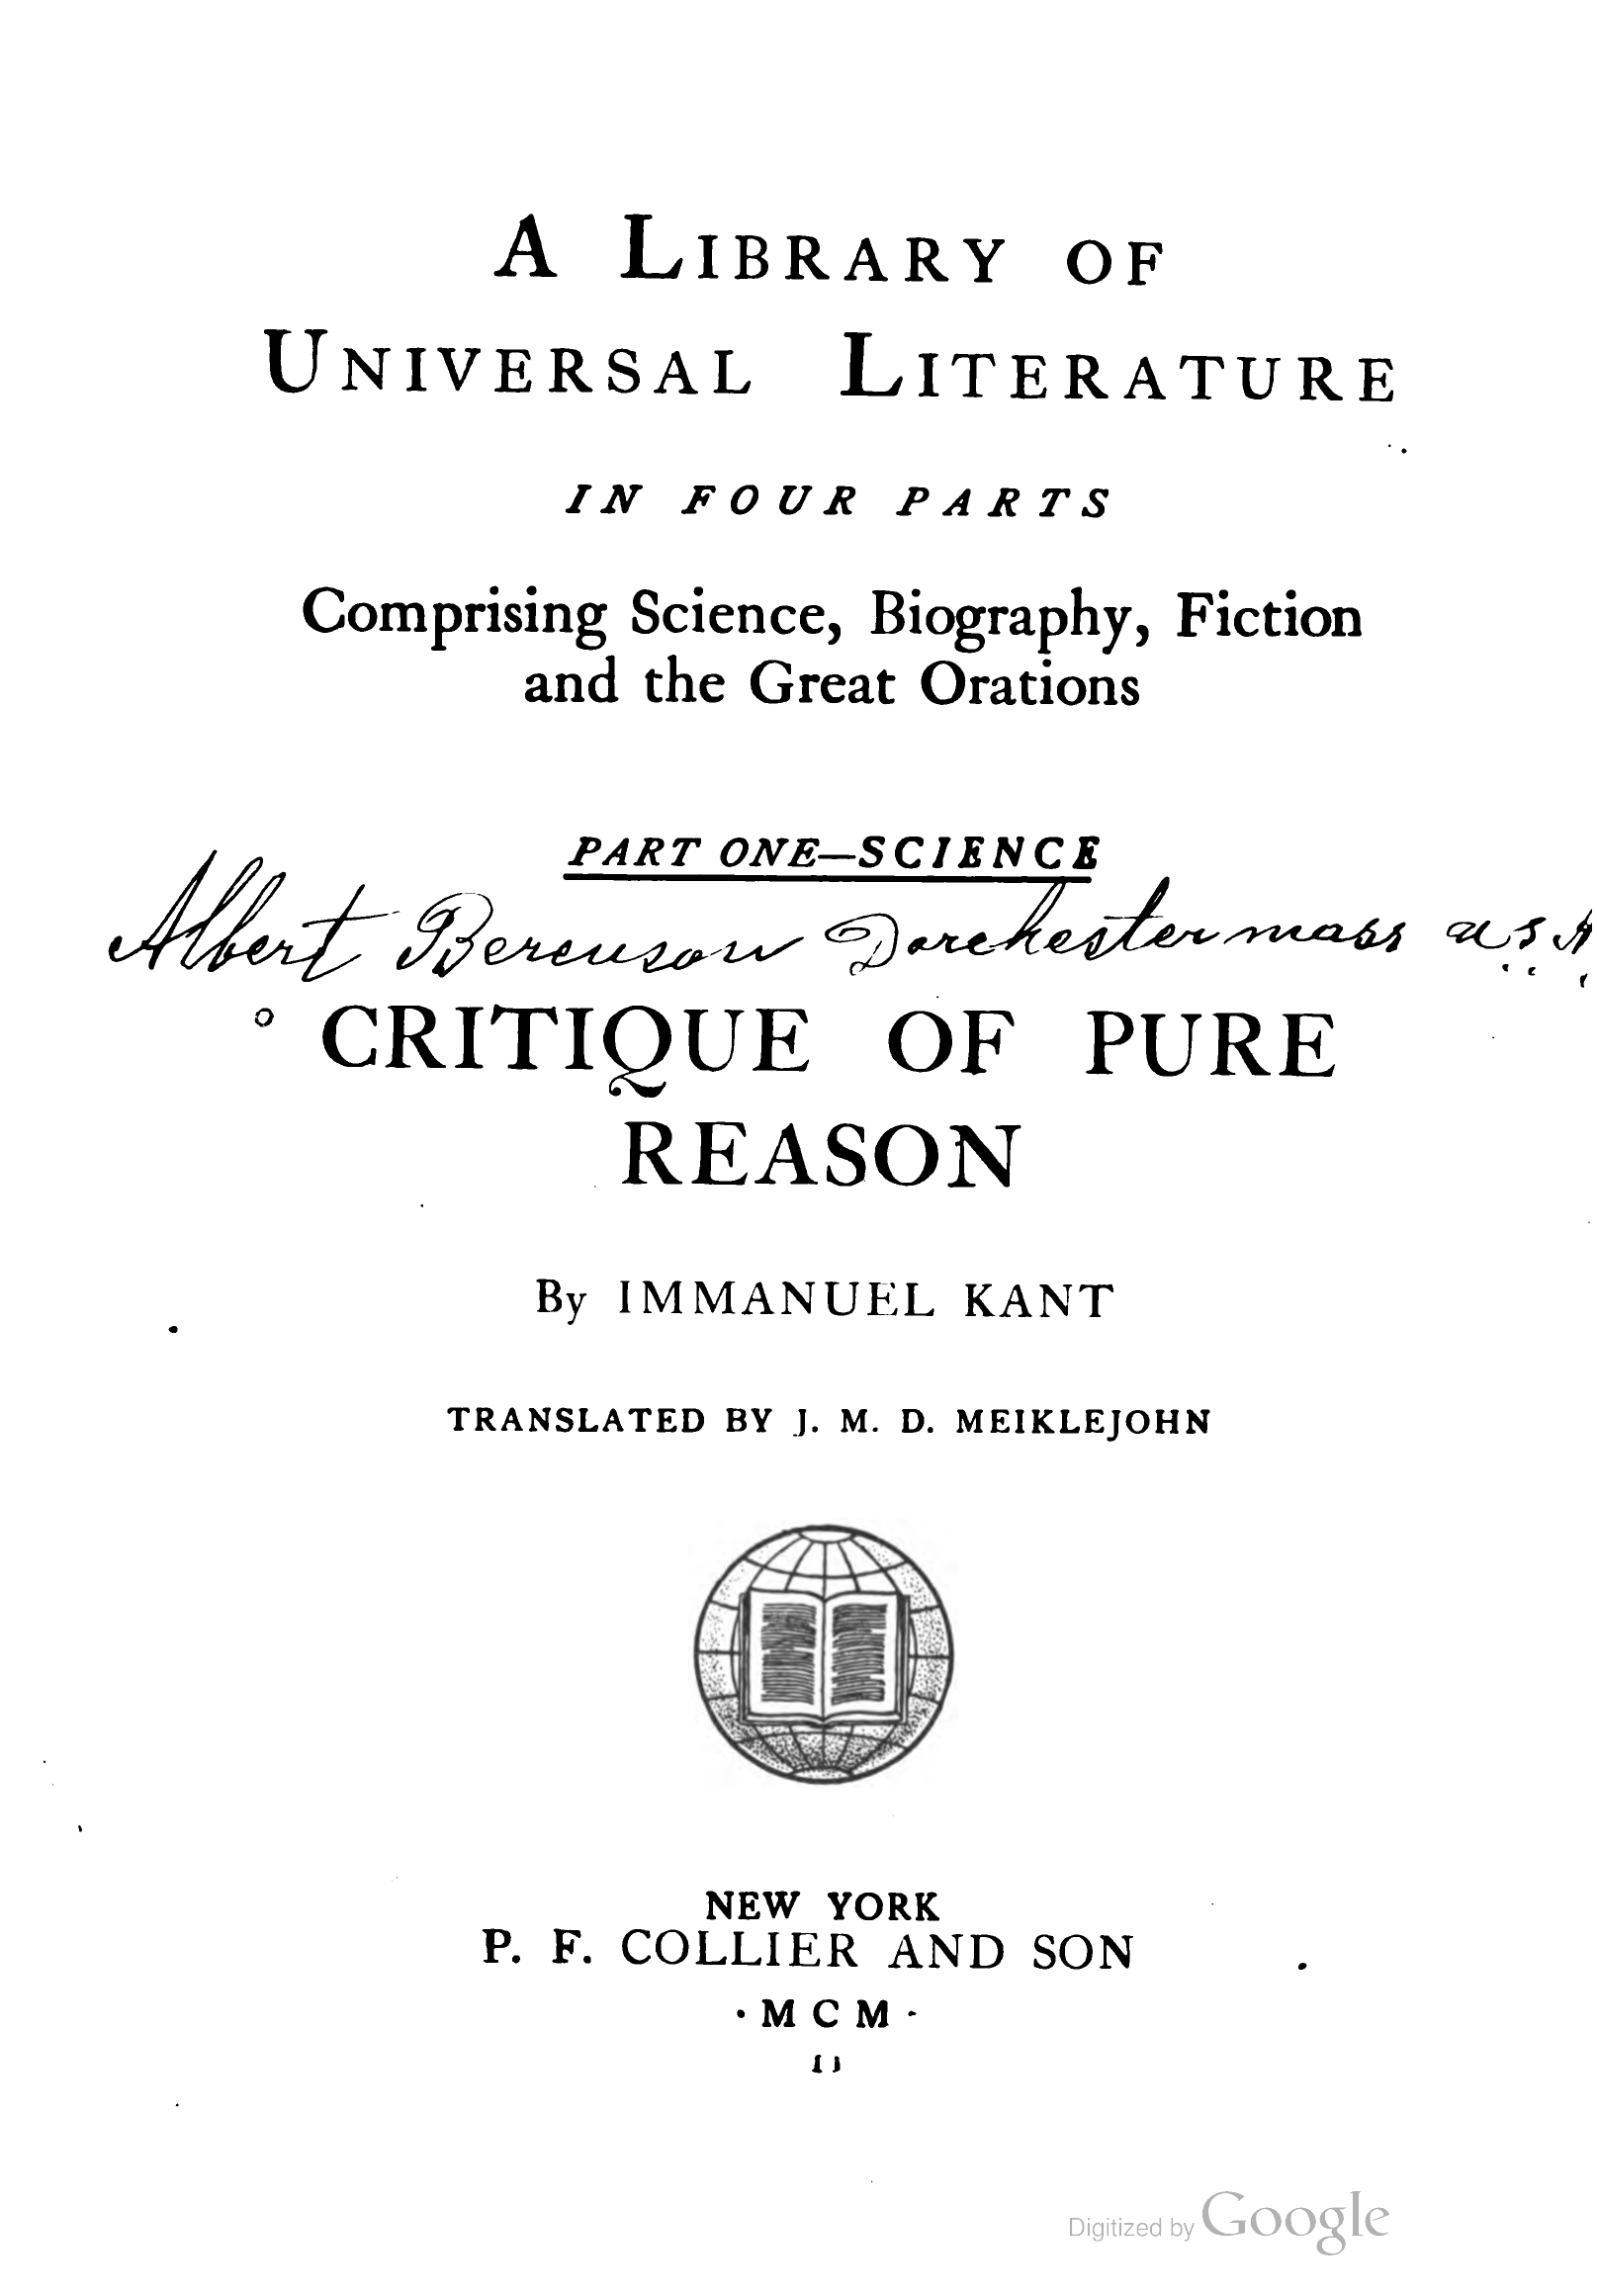 A LIBRARY OF
UNIVERSAL LITERATURE
IN FOUR PARTS
Comprising Science, Biography, Fiction
and the Great Orations
PART ONE—SCIENCE
Albert Berenson Dorchester mass U.S.A
CRITIQUE OF PURE
REASON
By IMMANUEL KANT
TRANSLATED BY J. M. D. MEIKLEJOHN
NEW YORK
P. F. COLLIER AND SON
· M C M ·
11
Digitized by Google